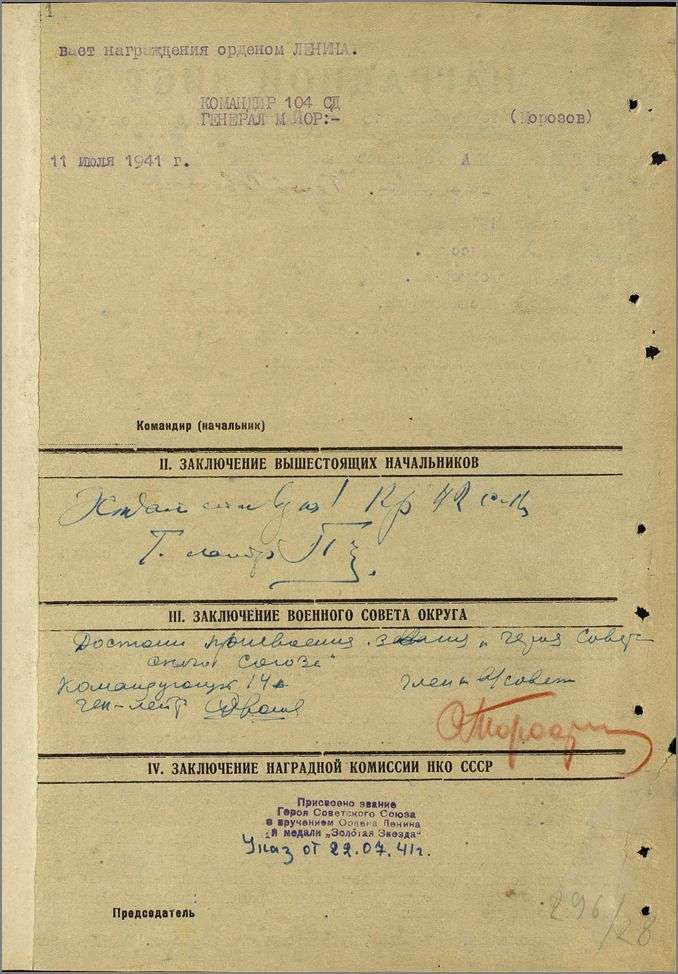 1
вает награждения орденом ЛЕНИНА.
КОМАНДИР 104 СД
ГЕНЕРАЛ МАЙОР:-
(Морозов)
11 июля 1941 г.
Командир (начальник)
II. ЗАКЛЮЧЕНИЕ ВЫШЕСТОЯЩИХ НАЧАЛЬНИКОВ
42
III. ЗАКЛЮЧЕНИЕ ВОЕННОГО СОВЕТА ОКРУГА
Достоин присвоения звания „Героя Совет
ского Союза"
Командующий 14
ген-лейт
IV. ЗАКЛЮЧЕНИЕ НАГРАДНОЙ КОМИССИИ НКО СССР
Присвоено звание
Героя Советского Союза
с вручением Ордена Ленина
и медали „Золотая Звезда"
Указ от 22.07.41г.
Председатель
296/28